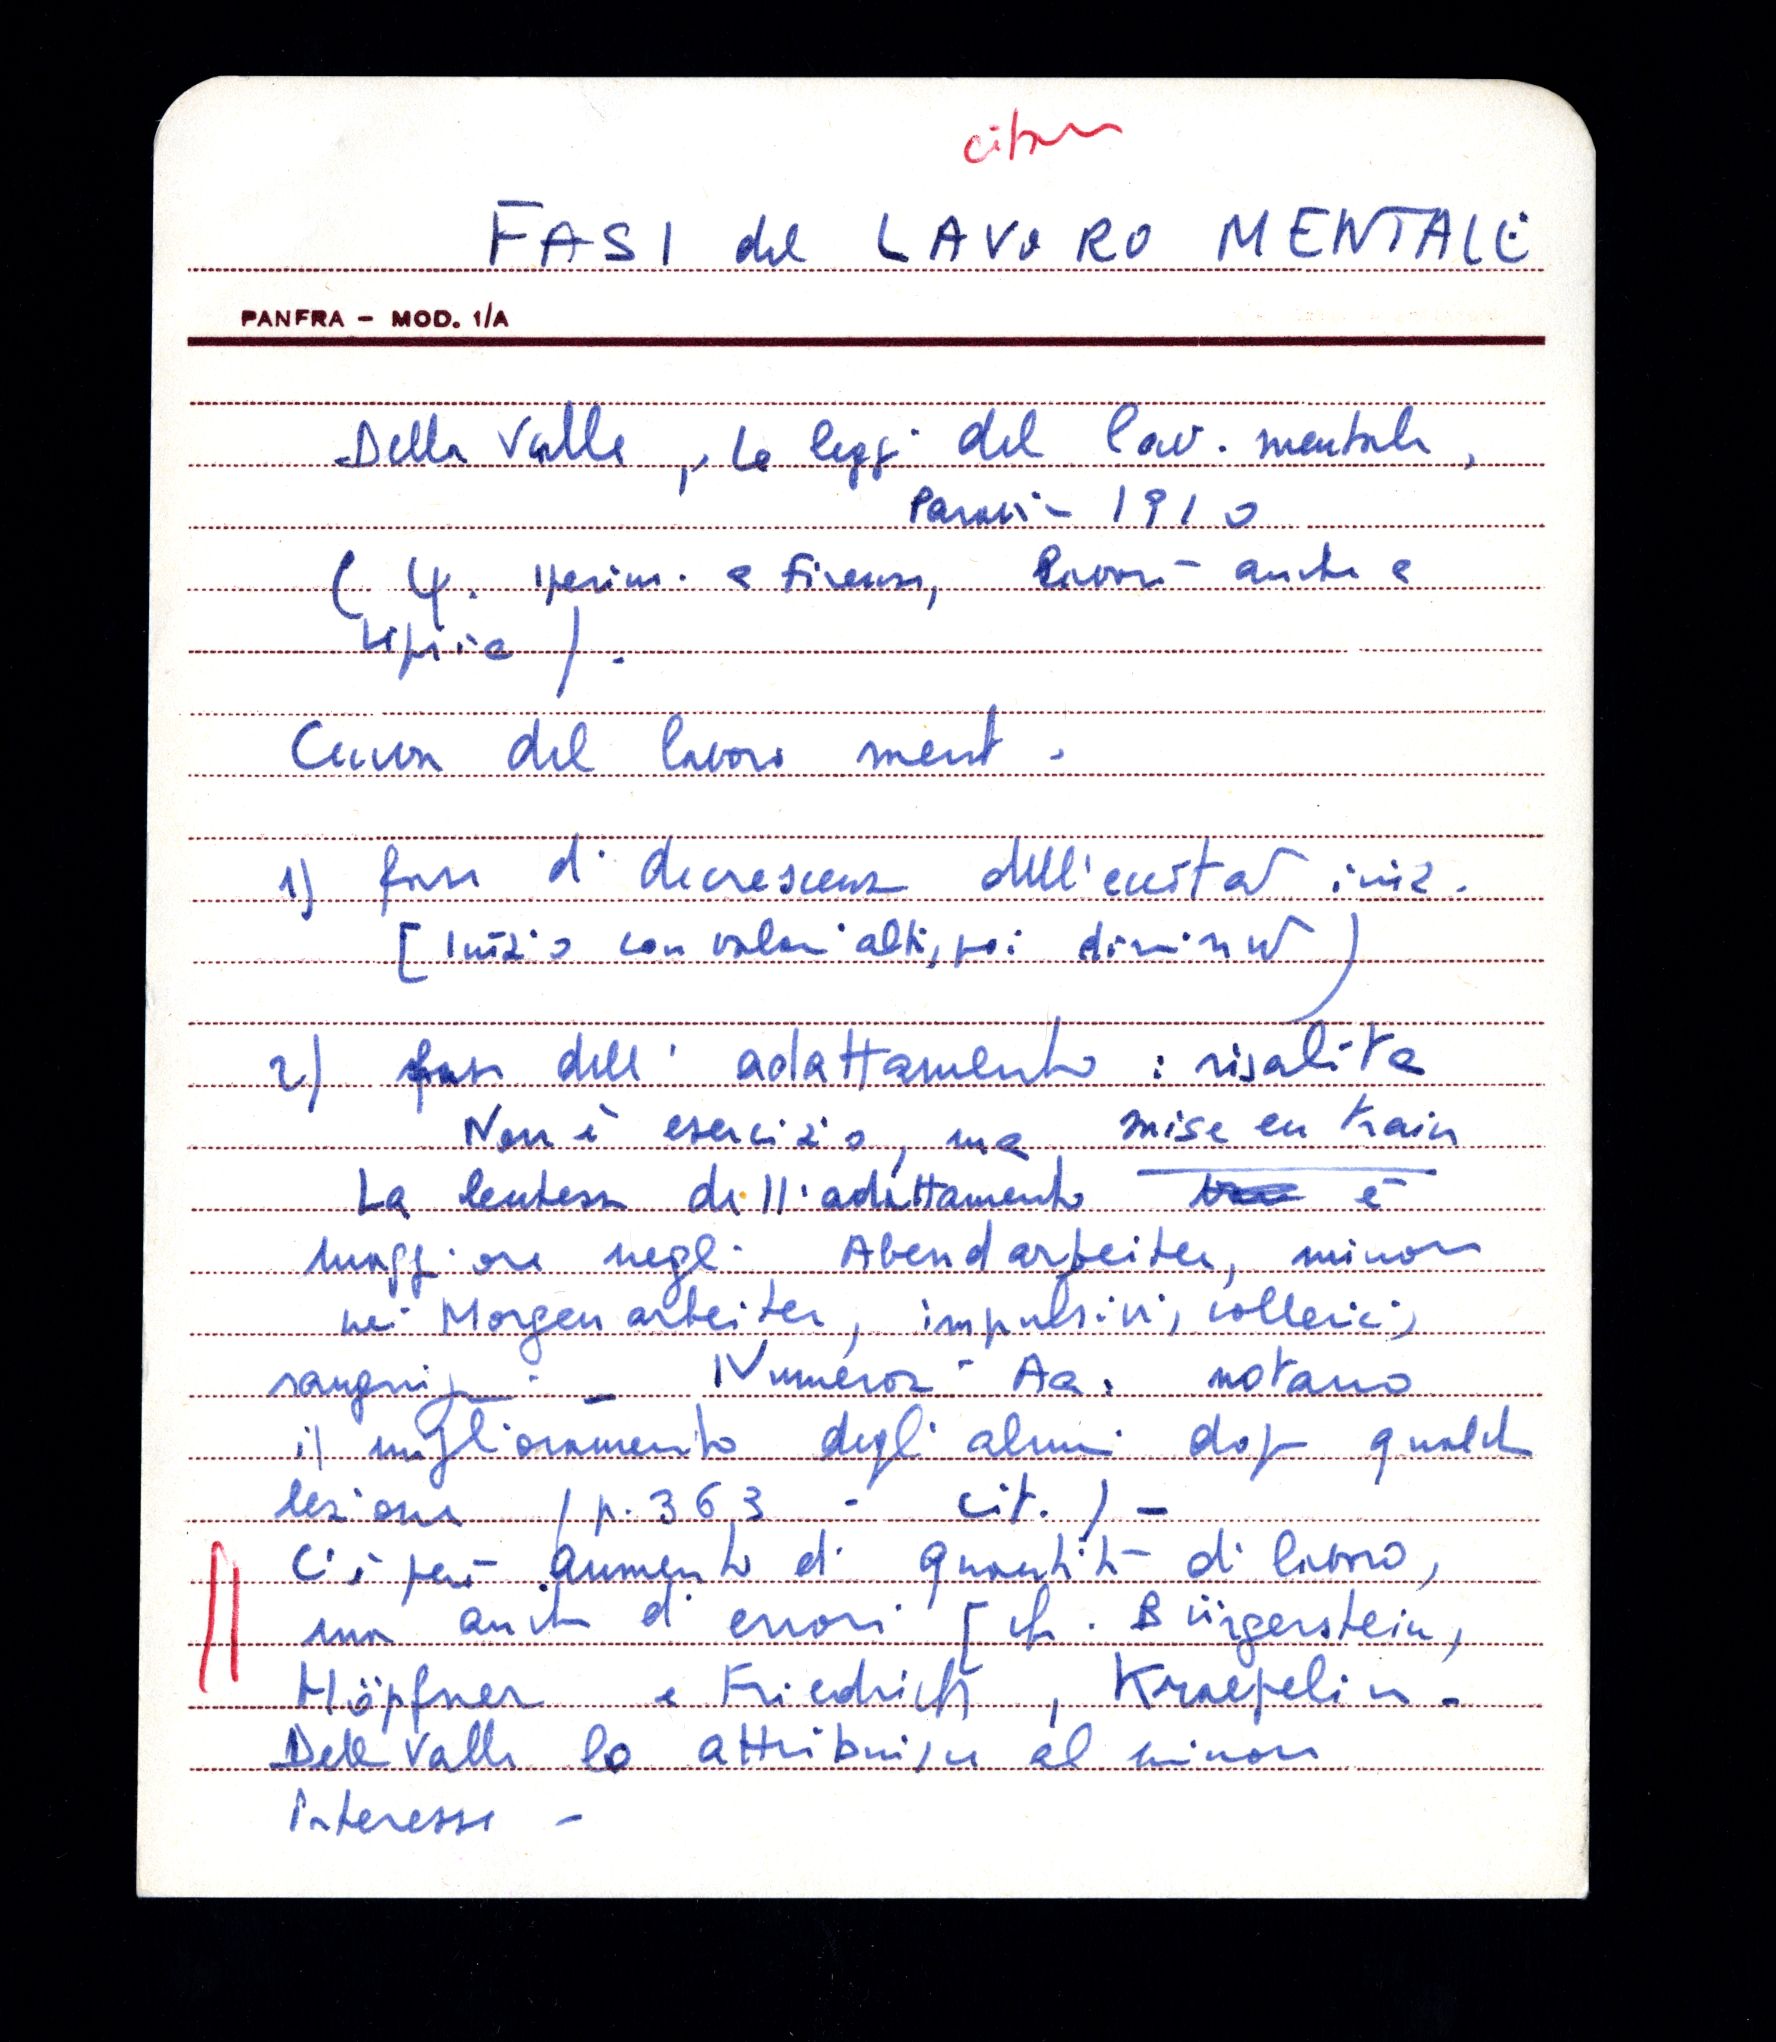 citare
FASI del LAVORO MENTALE
PANFRA - MOD. 1/A
Della Valle, Le leggi del lav. mentale,
Paravia - 1910
( ψ. sperim. a Firenze, lavorò anche a
Lipsia ).
Curva del lavoro ment.
1) fase di decrescenza dell'eccitaz iniz.
[ Inizio con valori alti, poi
2) fase dell' adattamento : risalita
Non è esercizio, ma mise en train
La lentezza dell'adattamento è
maggiore negli Abendarbeiter, minore
nei Morgenarbeiter, impulsivi, collerici,
sanguigni. - Numerosi Aa. notano
il miglioramento degli alunni dopo qualche
lezione ( p. 363 - cit. ) -
C'è però aumento di quantità di lavoro,
ma anche di errori [ cfr. Bürgerstein,
Höpfner e Friedrich, Kraepelin.
Della Valle lo attribuisce al minore
interesse -